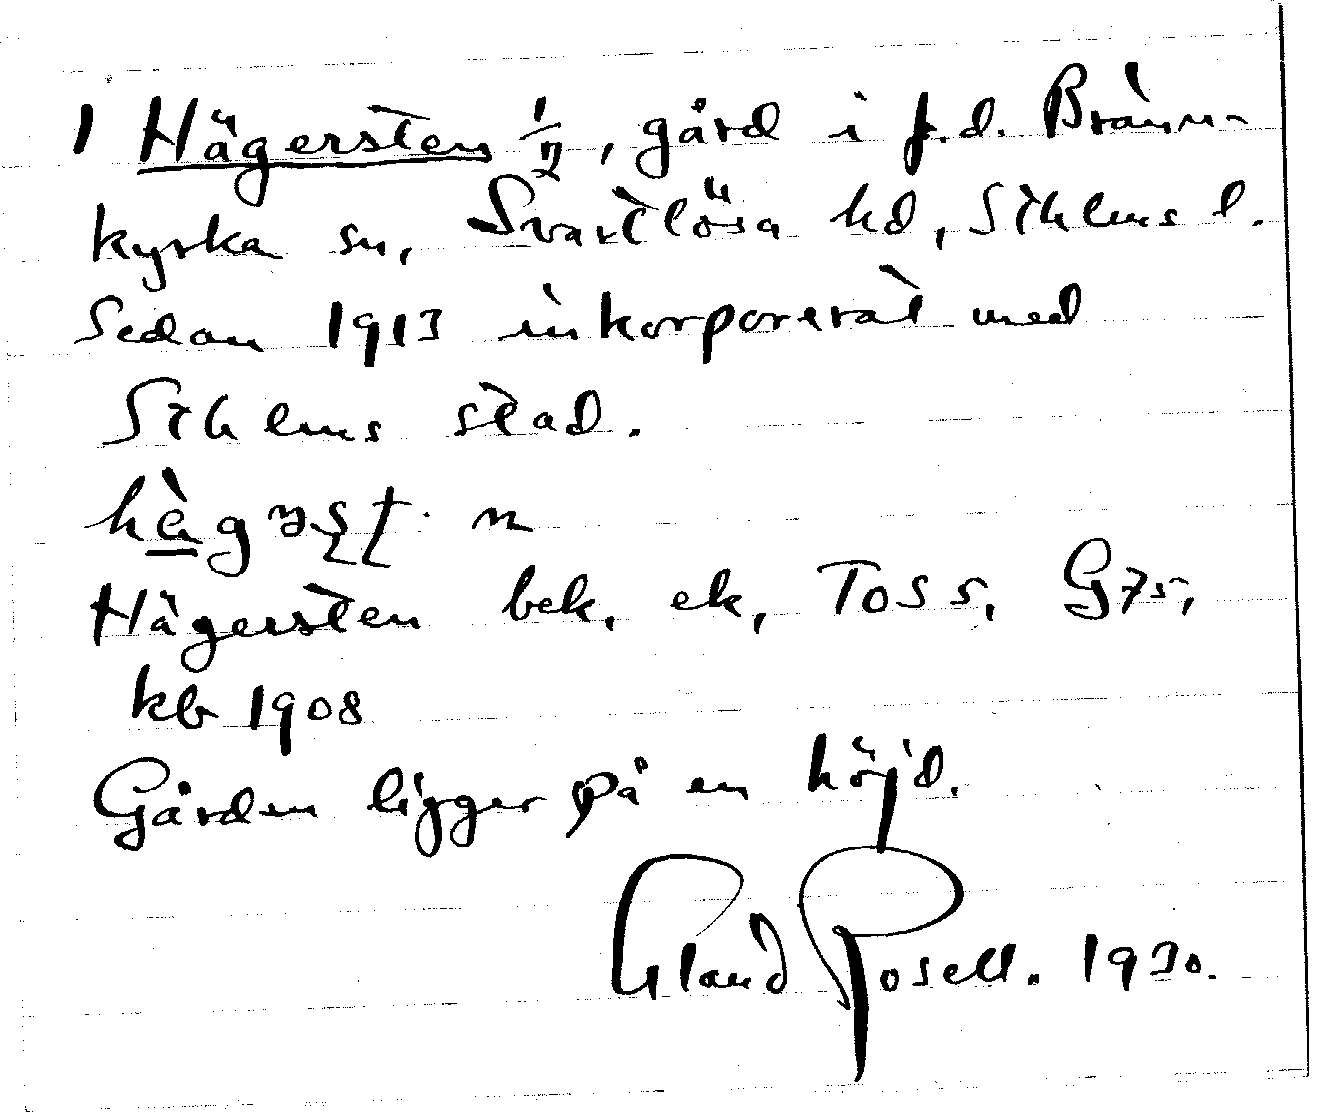 1 Hägersten 1/2, gård i f.d. Bränn-
kyrka sn, Svartlösa hd, Sthlms l.
Sedan 1913 inkorporerat med
Sthlms stad.
Hägersten bek, ek, TOS 5, G75,
kb 1908
Gården ligger på en höjd.
Rosell. 1930.